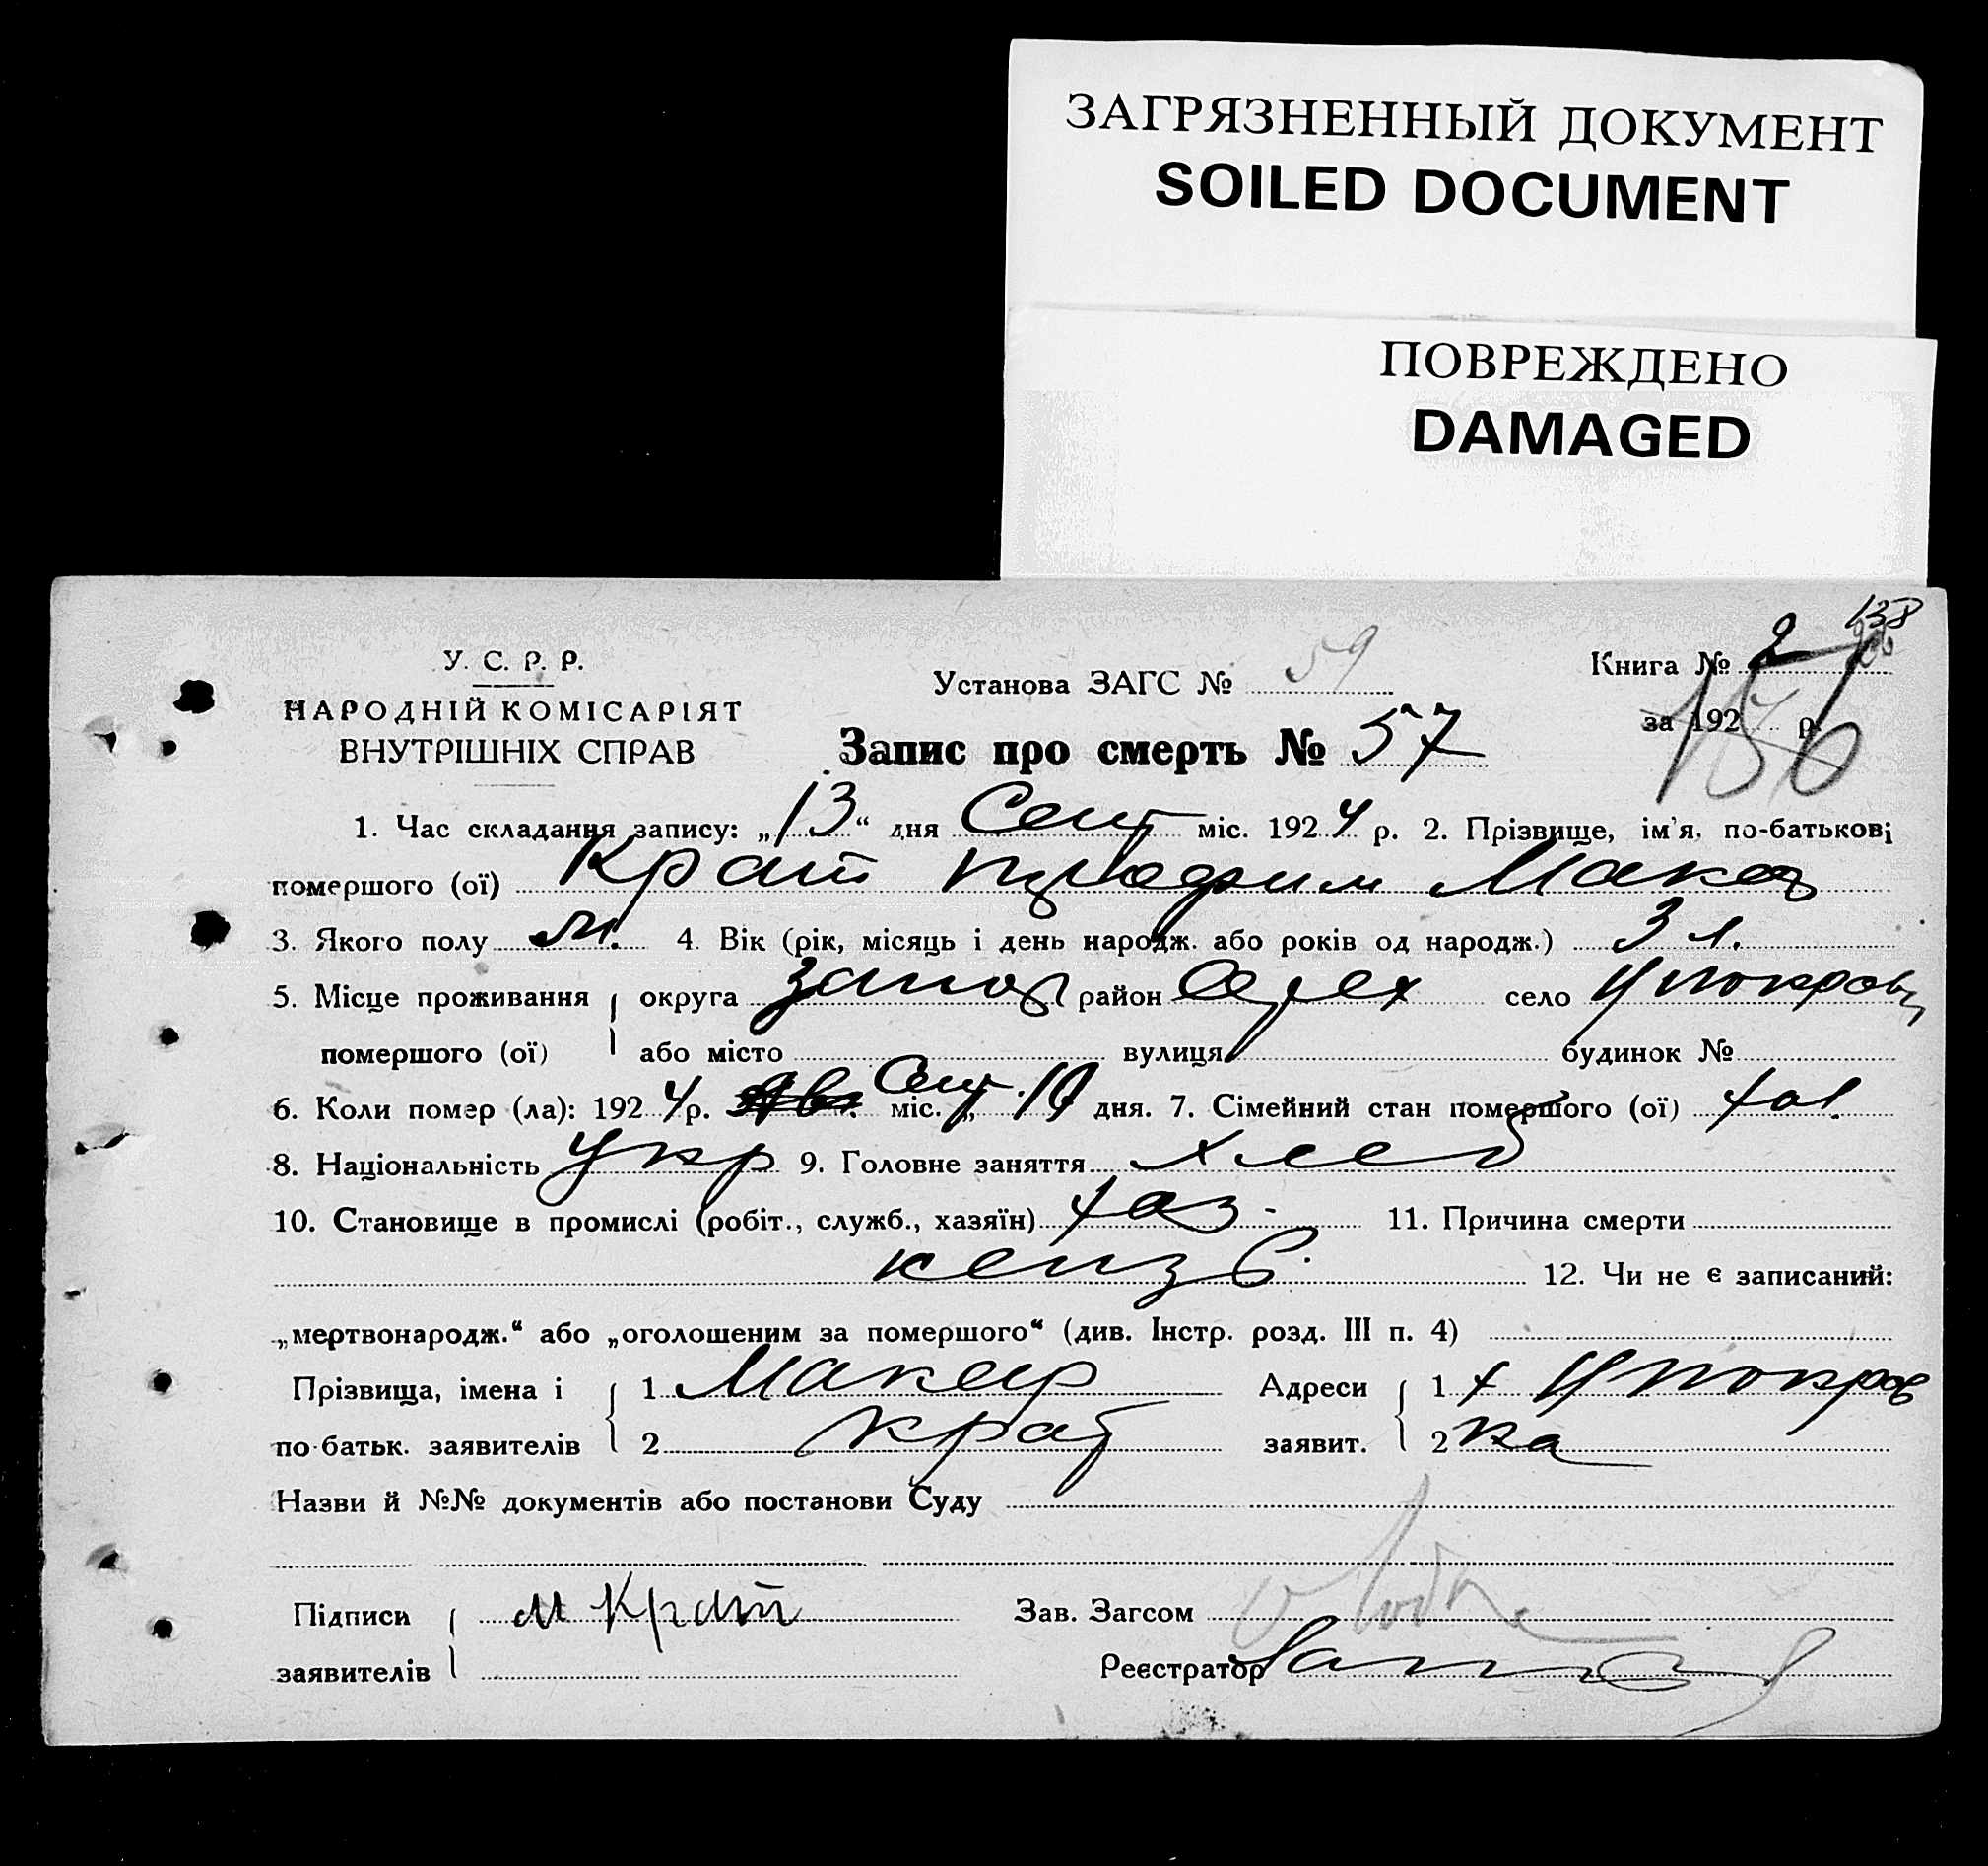 ЗАГРЯЗНЕННЫЙ ДОКУМЕНТ
SOILED DOCUMENT
ПОВРЕЖДЕНО
DAMAGED
138
У. С. Р. Р.
НАРОДНІЙ КОМІСАРІЯТ
ВНУТРІШНІХ СПРАВ
Установа ЗАГС № 59
Книга № 2
за 192 р.
156
Запис про смерть № 57
1. Час складання запису: „13“ дня Сент міс. 1924 р. 2. Прізвище, ім'я, по-батькові
помершого (ої) Крат Мака
3. Якого полу м. 4. Вік (рік, місяць і день народж. або років од народж.) 3 л.
5. Місце проживання округа Запор район Орех село
помершого (ої) або місто вулиця будинок №
6. Коли помер (ла): 1924 р. Сент міс. „10 дня. 7. Сімейний стан помершого (ої) хол.
8. Національність Укр 9. Головне заняття хлеб
10. Становище в промислі (робіт., служб., хазяїн) хаз. 11. Причина смерти
12. Чи не є записаний:
„мертвонародж.“ або „оголошеним за помершого“ (див. Інстр. розд. III п. 4)
Прізвища, імена і 1 Макар Адреси 1
по батьк. заявителів 2 Крат заявит. 2 ка
Назви й №№ документів або постанови Суду
Підписи м Крат Зав. Загсом
заявителів Реєстратор